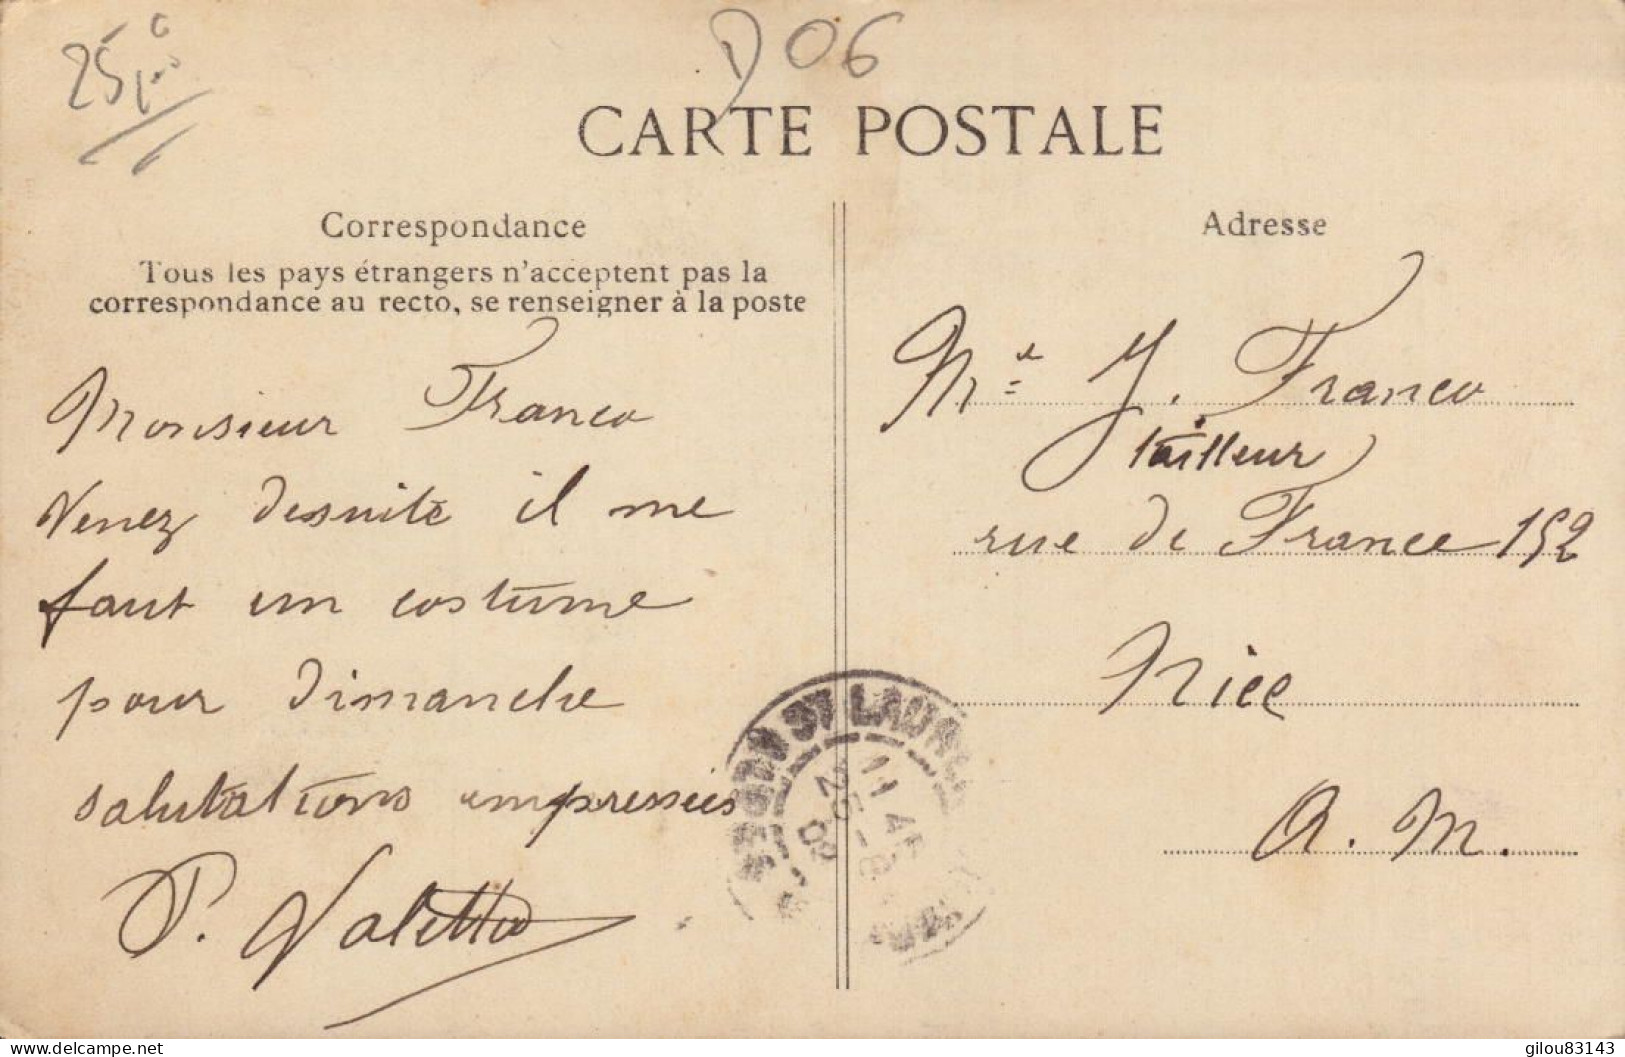 25,00
D06
CARTE POSTALE
Correspondance
Tous les pays étrangers n'acceptent pas la
correspondance au recto, se renseigner à la poste
Monsieur Franco
Venez desuite il me
faut un costume
pour dimanche
salutations empressées
P. Valetta
Adresse
Mr J. Franco
tailleur
rue de France 152
Nice
A. M.
ST LAURENT
11 45
25 -8
09
delcampe.net
gilou83143